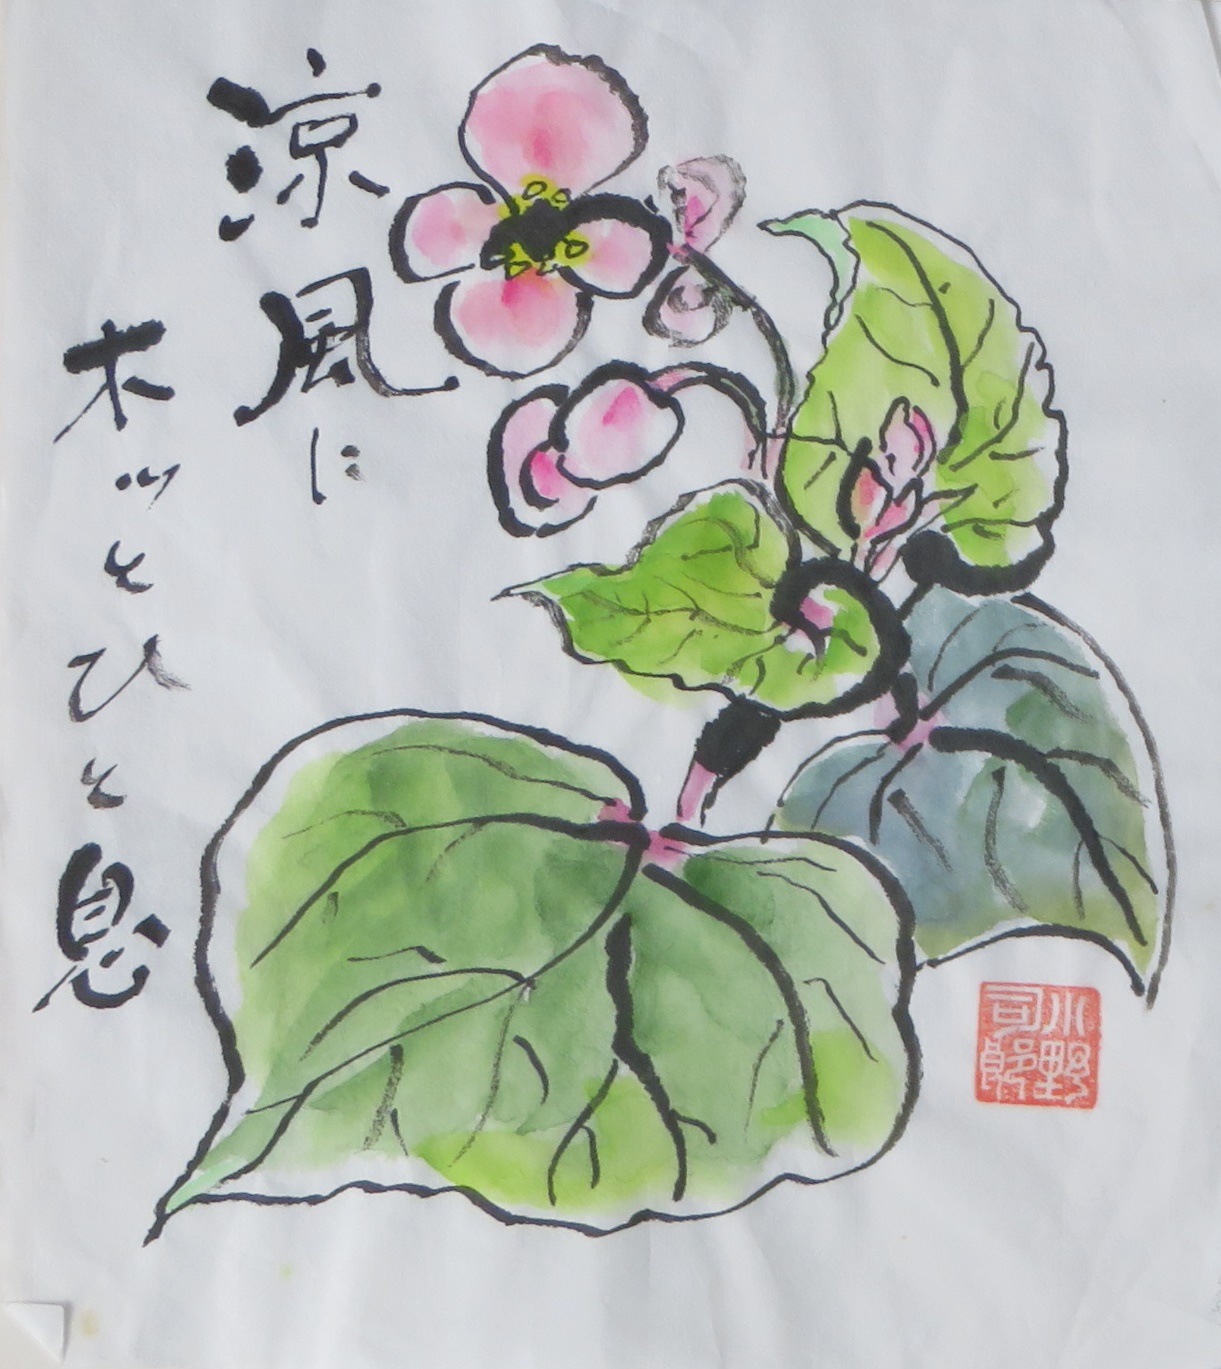 涼風に
木ッとひと息
小野
司郎